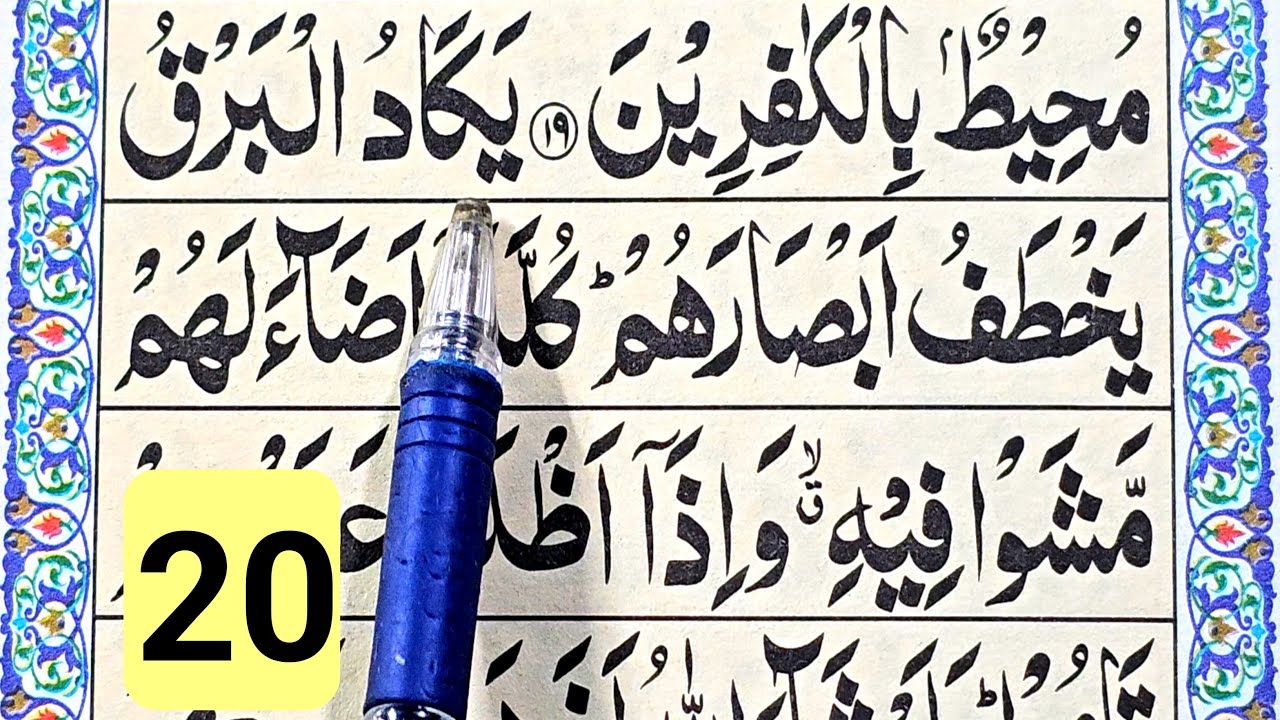 مُحِيۡطٌۢ بِالۡكٰفِرِيۡنَ ﴿۱۹﴾ يَكَادُ الۡبَرۡقُ
يَخۡطَفُ اَبۡصَارَهُمۡؕ كُلَّمَاۤ اَضَآءَ لَهُمۡ
مَّشَوۡا فِيۡهِۙ وَاِذَاۤ اَظۡلَمَ عَلَيۡهِمۡ
20